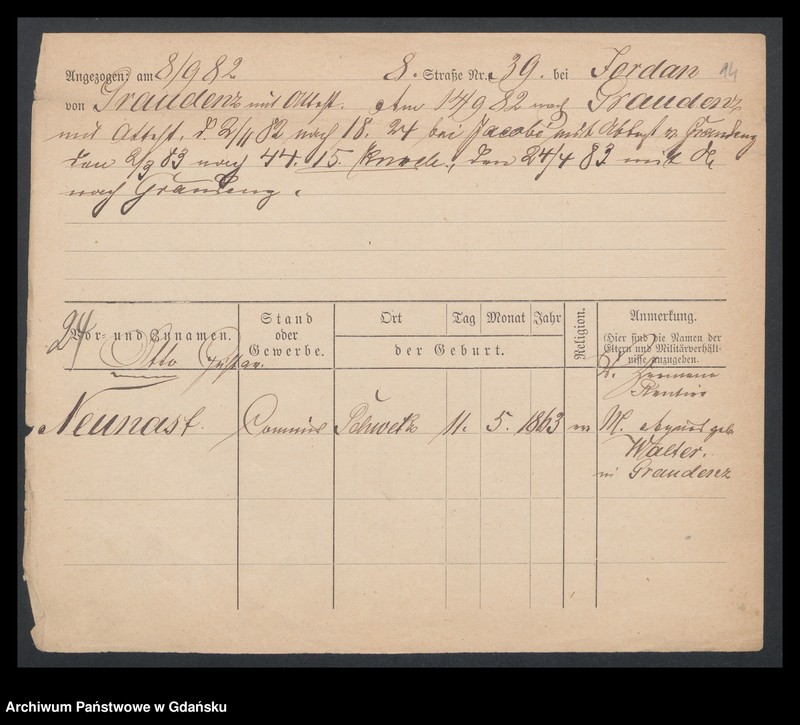 Angezogen: am 8/9 82 8. Straße Nr. 39. bei Jordan 14
von Graudenz mit Attest. Am 14/9 82 nach Graudenz
mit Attest, d. 2/11 82 nach 18. 24 bei Jacobi mit Attest v. Graudenz
den 2/3 83 nach 44. 15. den 24/4 83 mit
nach Graudenz.
24
Vor- und Zunamen.
Stand
oder
Gewerbe.
Ort Tag Monat Jahr
der Geburt.
Religion.
Anmerkung.
(Hier sind die Namen der
Eltern und Militärverhält-
nisse anzugeben.
Otto Gustav.
V. Hermann
Rentier
Neunast. Commis Schwetz 11. 5. 1863 m M. Agnes geb.
Walter.
in Graudenz
Archiwum Państwowe w Gdańsku